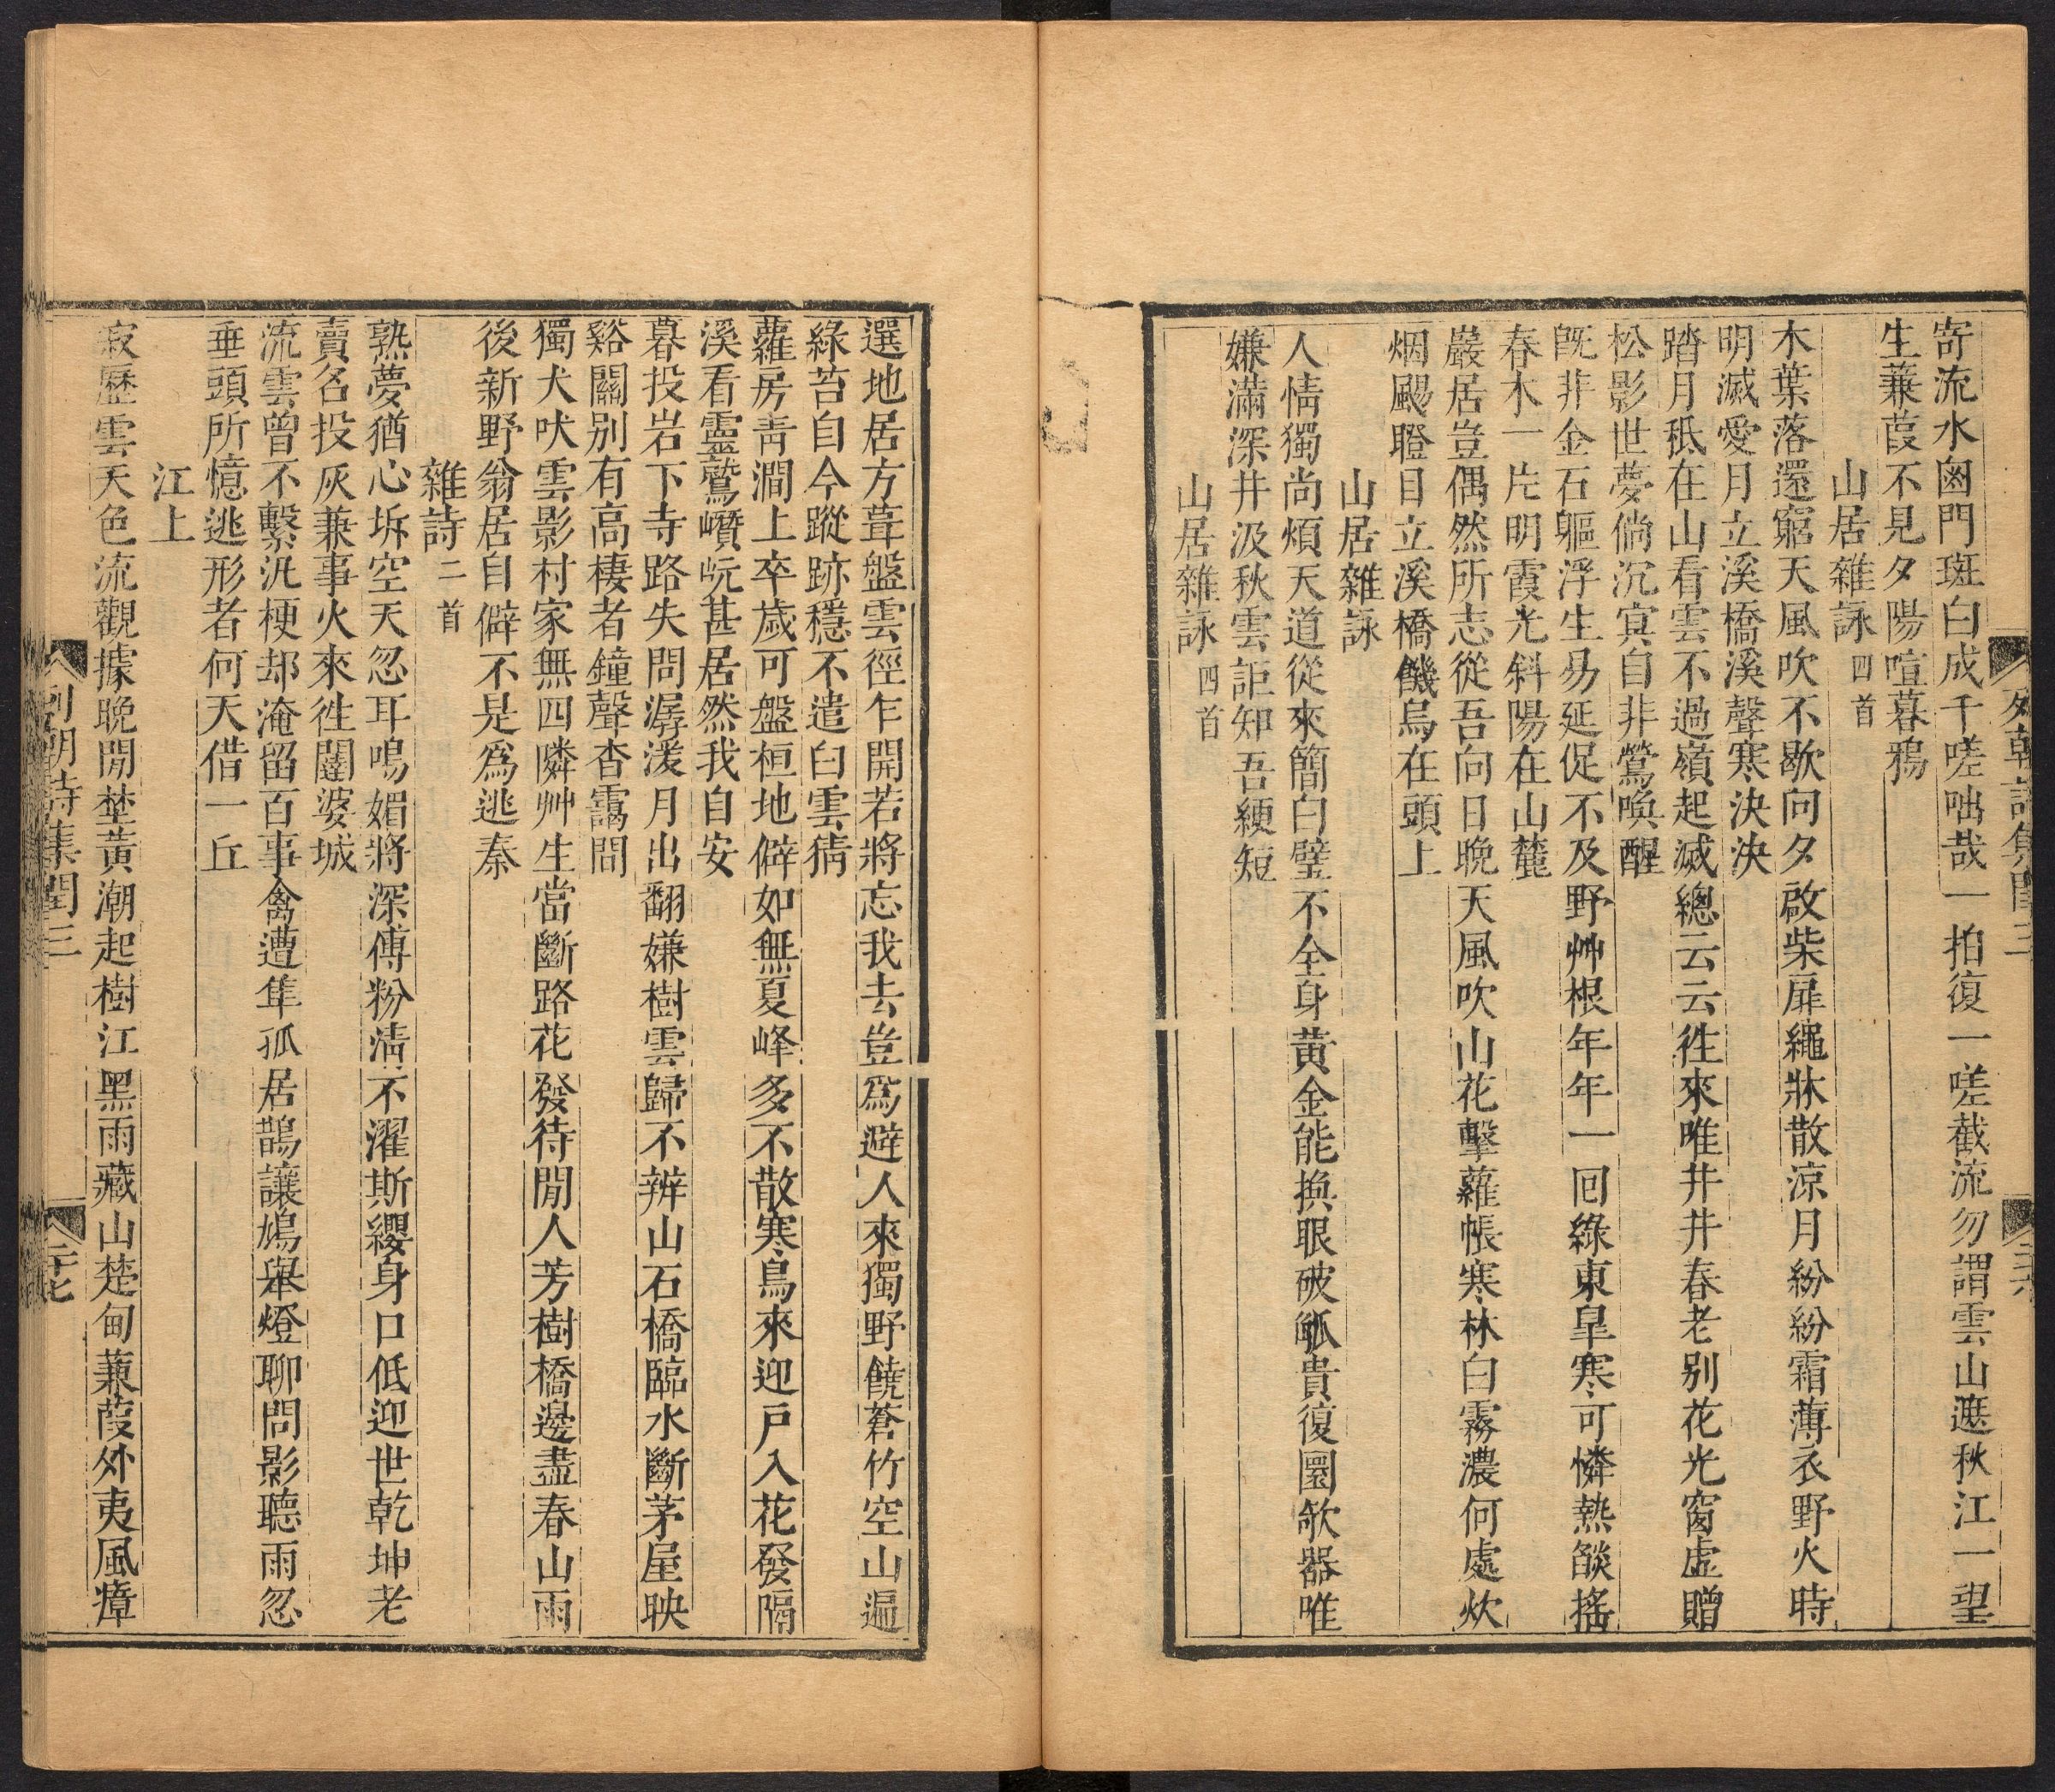 寄流水鹵門斑白成千嗟咄哉一拍復一嗟截流勿謂雲山遮秋江一望
生蒹葭不見夕陽喧暮鴉
山居雜詠四首
木葉落還窮天風吹不歇向夕啟柴扉繩牀散涼月紛紛霜薄衣野火時
明滅愛月立溪橋溪聲寒決決
踏月秪在山看雲不過嶺起滅總云云徃來唯井井春老別花光窗虛贈
松影世夢倘沉寘自非鶯喚醒
旣非金石軀浮生易延促不及野艸根年年一回綠東皐寒可憐熱燄搖
春木一片明霞光斜陽在山麓
嚴居豈偶然所志從吾向日晚天風吹山花擊蘿帳寒林白霧濃何處炊
烟颺瞪目立溪橋饑烏在頭上
山居雜詠
人情獨尚煩天道從來簡白璧不全身黃金能換眼破觚貴復圜欹器唯
嫌滿深井汲秋雲詎知吾綆短
山居雜詠四首
選地居方葺盤雲徑乍開若將忘我去豈爲避人來獨野饒蒼竹空山遍
綠苔自今蹤跡穩不遣白雲猜
蘿房靑澗上卒歲可盤桓地僻如無夏峰多不散寒鳥來迎戶入花發隔
溪看靈鷲巑岏甚居然我自安
暮投岩下寺路失問潺湲月出翻嫌樹雲歸不辨山石橋臨水斷茅屋映
谿關別有高棲者鐘聲杳靄間
獨犬吠雲影村家無四隣艸生當斷路花發待閒人芳樹橋邊盡春山雨
後新野翁居自僻不是爲逃秦
雜詩二首
熟夢猶心坼空天忽耳鳴媚將深傅粉淸不濯斯纓身口低迎世乾坤老
賣名投灰兼事火來徃闥婆城
流雲曾不繫汎梗却淹留百事禽遭隼孤居鵲讓鳩舉燈聊問影聽雨忽
垂頭所憶逃形者何天借一丘
江上
寂歷雲天色流觀據晚閒埜黃潮起樹江黑雨藏山楚甸蒹葭外夷風瘴
列朝詩集閏三
二十七